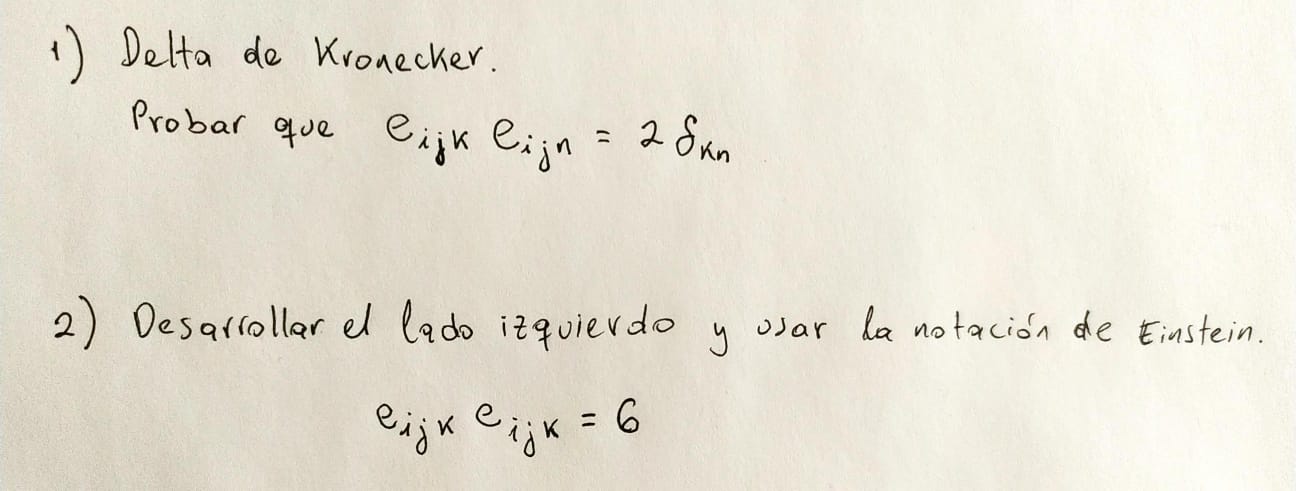 1) Delta de Kronecker.
Probar que eijk eijn = 2 δkn
2) Desarrollar el lado izquierdo y usar la notación de Einstein.
eijk eijk = 6